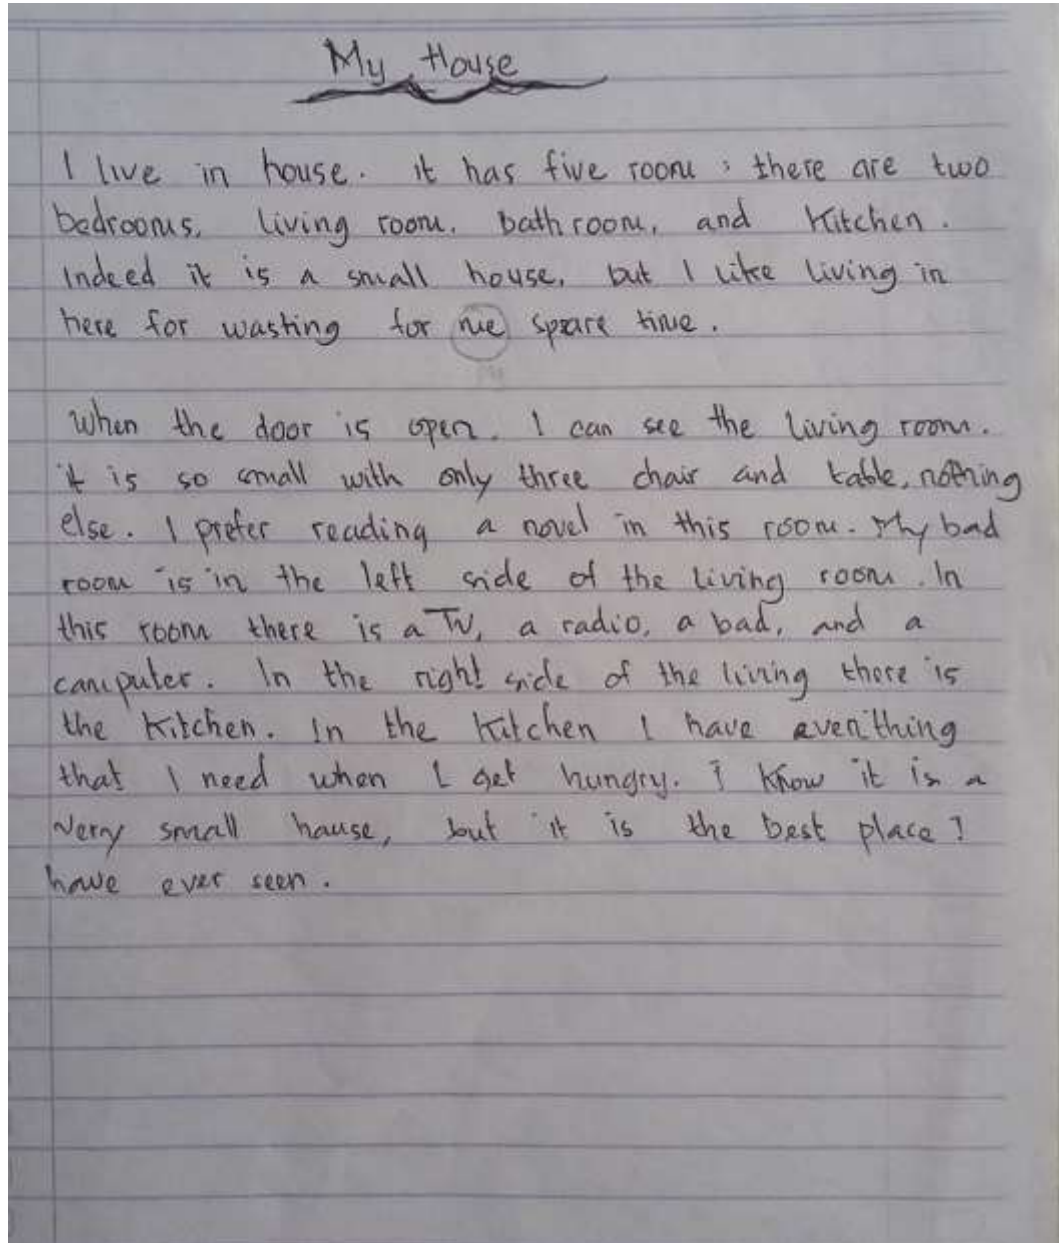 My House
I live in house. it has five room : there are two
bedrooms, living room, bathroom, and Kitchen.
Indeed it is a small house, but I like living in
here for wasting for me spare time.
When the door is open, I can see the living room.
it is so small with only three chair and table, nothing
else. I prefer reading a novel in this room. My bad
room is in the left side of the living room. In
this room there is a TV, a radio, a bad, and a
camputer. In the right side of the living there is
the Kitchen. In the Kitchen I have everithing
that I need when I get hungry. I know it is a
very small hause, but it is the best place I
have ever seen.